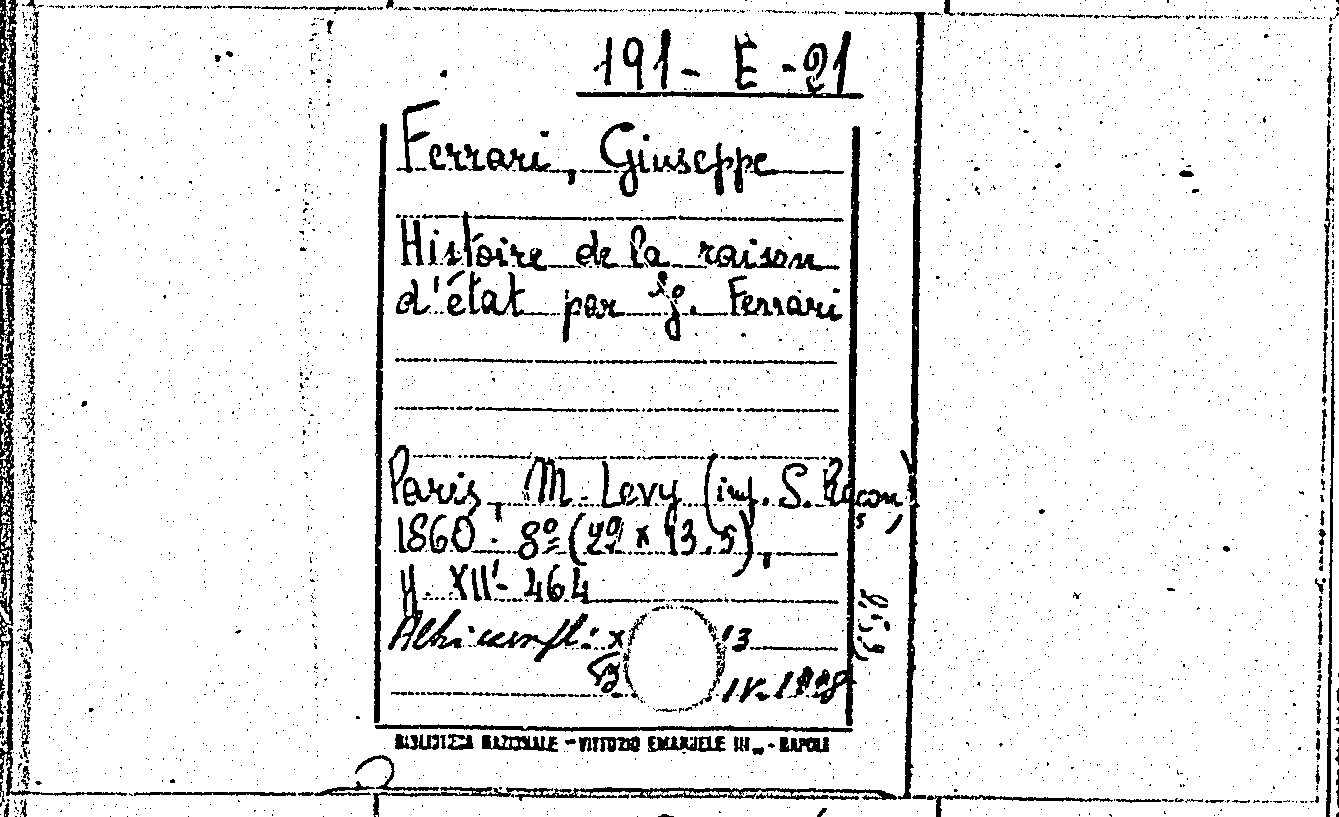 191-E-21
Ferrari, Giuseppe
Histoire de la raison
d'état par G. Ferrari
Paris, M. Levy (imp. S. Raçon),
1860. 8º (22 x 13.5),
pp. XII-464
BIBLIOTECA NAZIONALE - VITTORIO EMANUELE III - NAPOLI